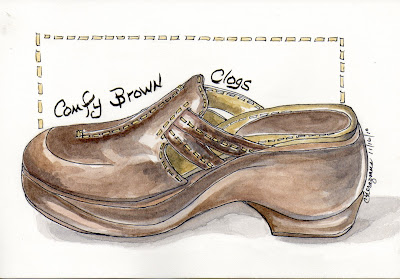 Comfy Brown Clogs
11/10/10